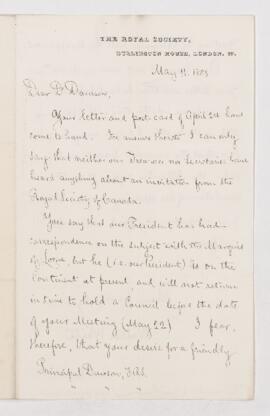 THE ROYAL SOCIETY,
BURLINGTON HOUSE, LONDON. W.
May 11. 1883
Dear Dr Dawson,
Your letter and post card of April 21st have
come to hand. In answer thereto I can only
say that neither our Treasurer nor Secretaries have
heard anything about an invitation from the
Royal Society of Canada.
You say that our President has had
correspondence on the subject with the Marquis
of Lorne, but he (i.e. our President) is on the
Continent at present, and will not return
in time to hold a Council before the date
of your Meeting (May 22) I fear,
therefore, that your desire for a friendly
Principal Dawson, F.R.S.